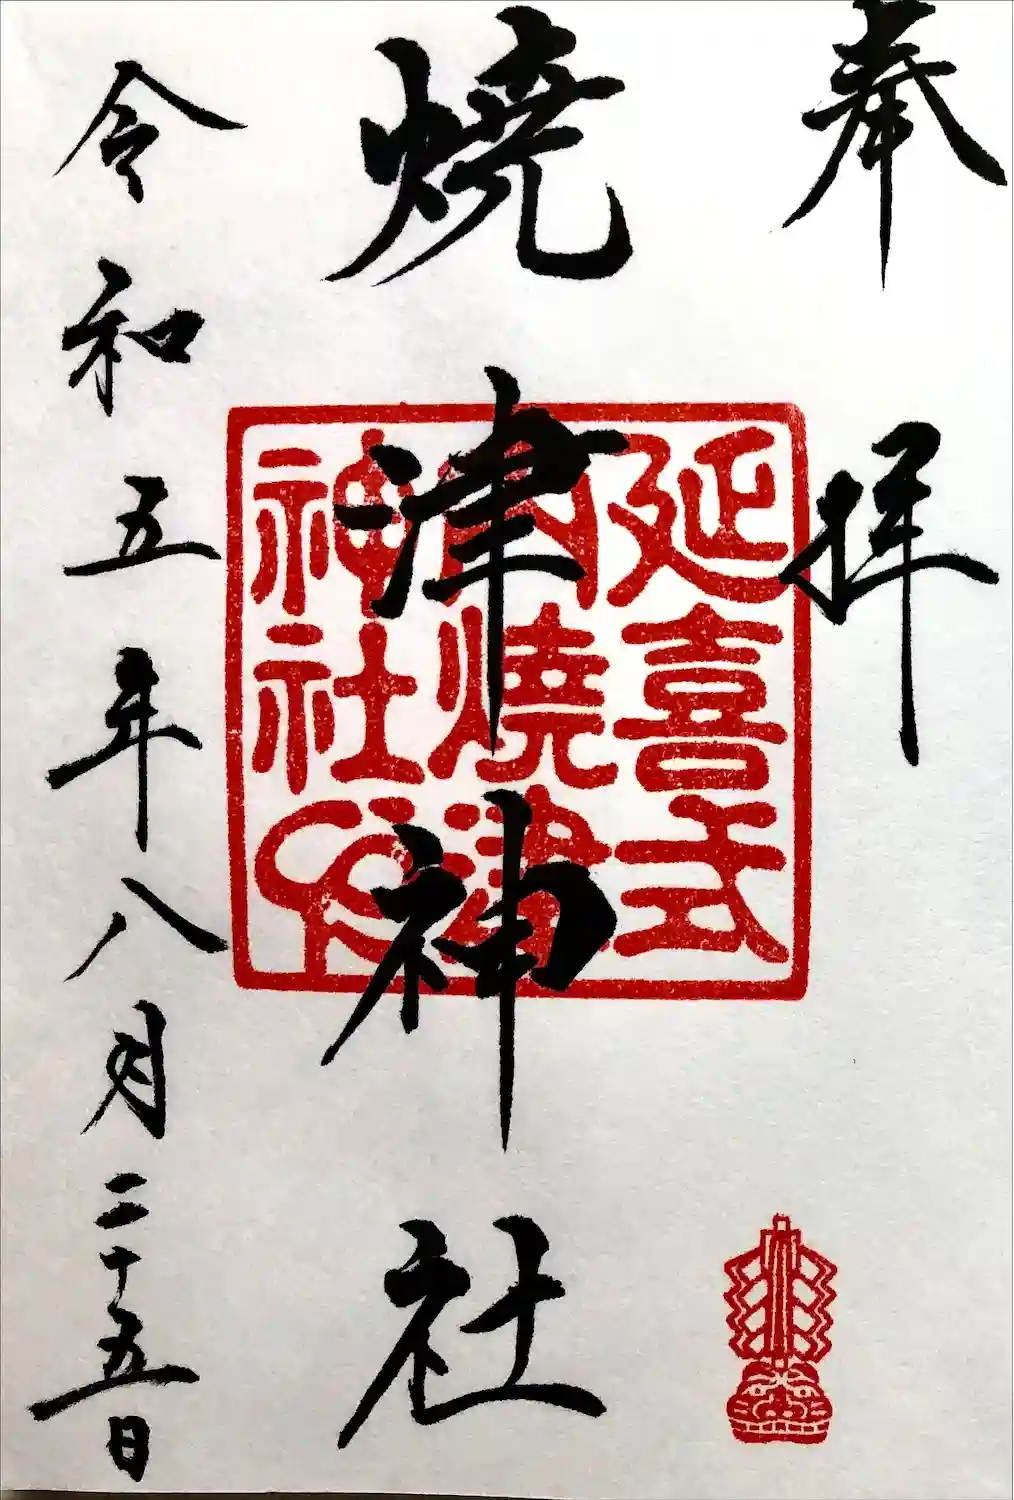 奉拝
焼津神社
延喜式
内燒津
神社
令和五年八月二十五日